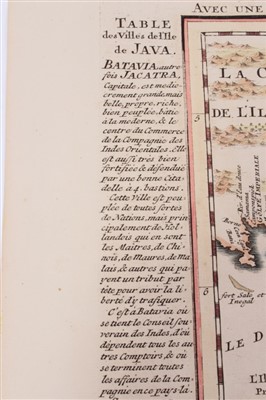 AVEC UNE
TABLE
des Villes de l'Ile
de JAVA.
BATAVIA, autre
fois JACATRA,
Capitale, est medio-
crement grande, mais
belle, propre, riche,
bien peuplée, bâtie
à la moderne, & le
centre du Commerce
de la Compagnie des
Indes Orientales. elle
est aussi très bien
fortifiée & défendüe
par une bonne Cita
delle à 4. bastions.
Cette Ville est peu-
plée de toutes sortes
de Nations, mais prin
cipalement de Hol-
landois qui en sont
les Maitres, de Chi-
nois, de Maures, de Ma
lais & autres qui pa-
yent un tribut par
tête pour avoir la li-
berté d'y trafiquer.
C'est à Batavia où
se tient le Conseil sou-
verain des Indes, d'où
dépendent tous les au
tres Comptoirs, & où
se terminent toutes
les affaires de la Com-
pagnie en ce pays-là.
LA CO
DE L'IL
5
6
fort Sale, et
Inegal
LE D
L'I
Pr